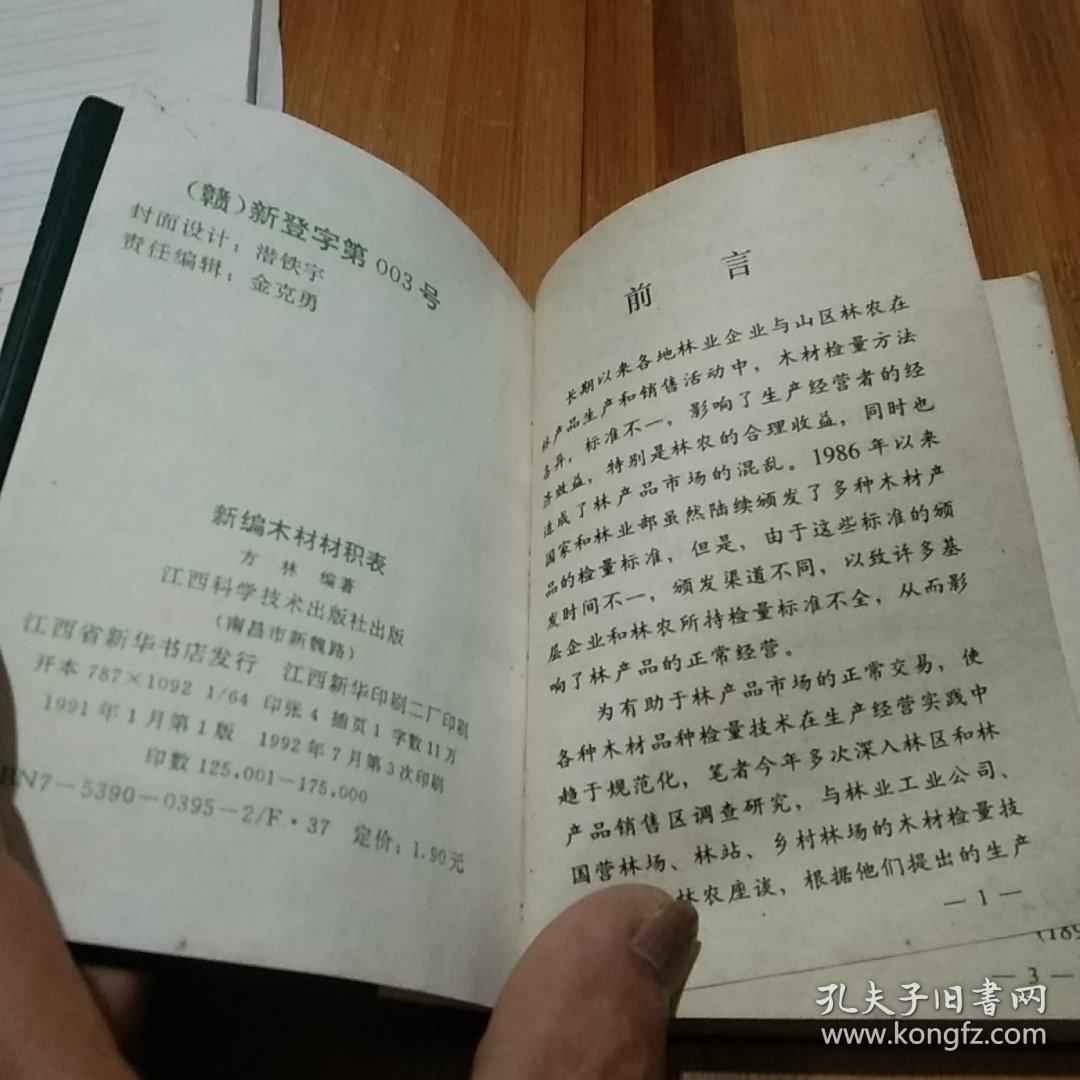 (赣)新登字第003号
封面设计：潜铁宇
责任编辑：金克勇
新编木材材积表
方林 编著
江西科学技术出版社出版
(南昌市新魏路)
江西省新华书店发行 江西新华印刷二厂印刷
开本787×1092 1/64 印张4 插页1 字数11万
1991年1月第1版 1992年7月第3次印刷
印数125,001—175,000
BN7—5390—0395—2/F·37 定价：1.90元
前言
长期以来各地林业企业与山区林农在
林产品生产和销售活动中，木材检量方法
各异，标准不一，影响了生产经营者的经
济效益，特别是林农的合理收益，同时也
造成了林产品市场的混乱。1986年以来
国家和林业部虽然陆续颁发了多种木材产
品的检量标准，但是，由于这些标准的颁
发时间不一，颁发渠道不同，以致许多基
层企业和林农所持检量标准不全，从而影
响了林产品的正常经营。
为有助于林产品市场的正常交易，使
各种木材品种检量技术在生产经营实践中
趋于规范化，笔者今年多次深入林区和林
产品销售区调查研究，与林业工业公司、
国营林场、林站、乡村林场的木材检量技
林农座谈，根据他们提出的生产
—1—
(189
—3—
孔夫子旧书网
www.kongfz.com